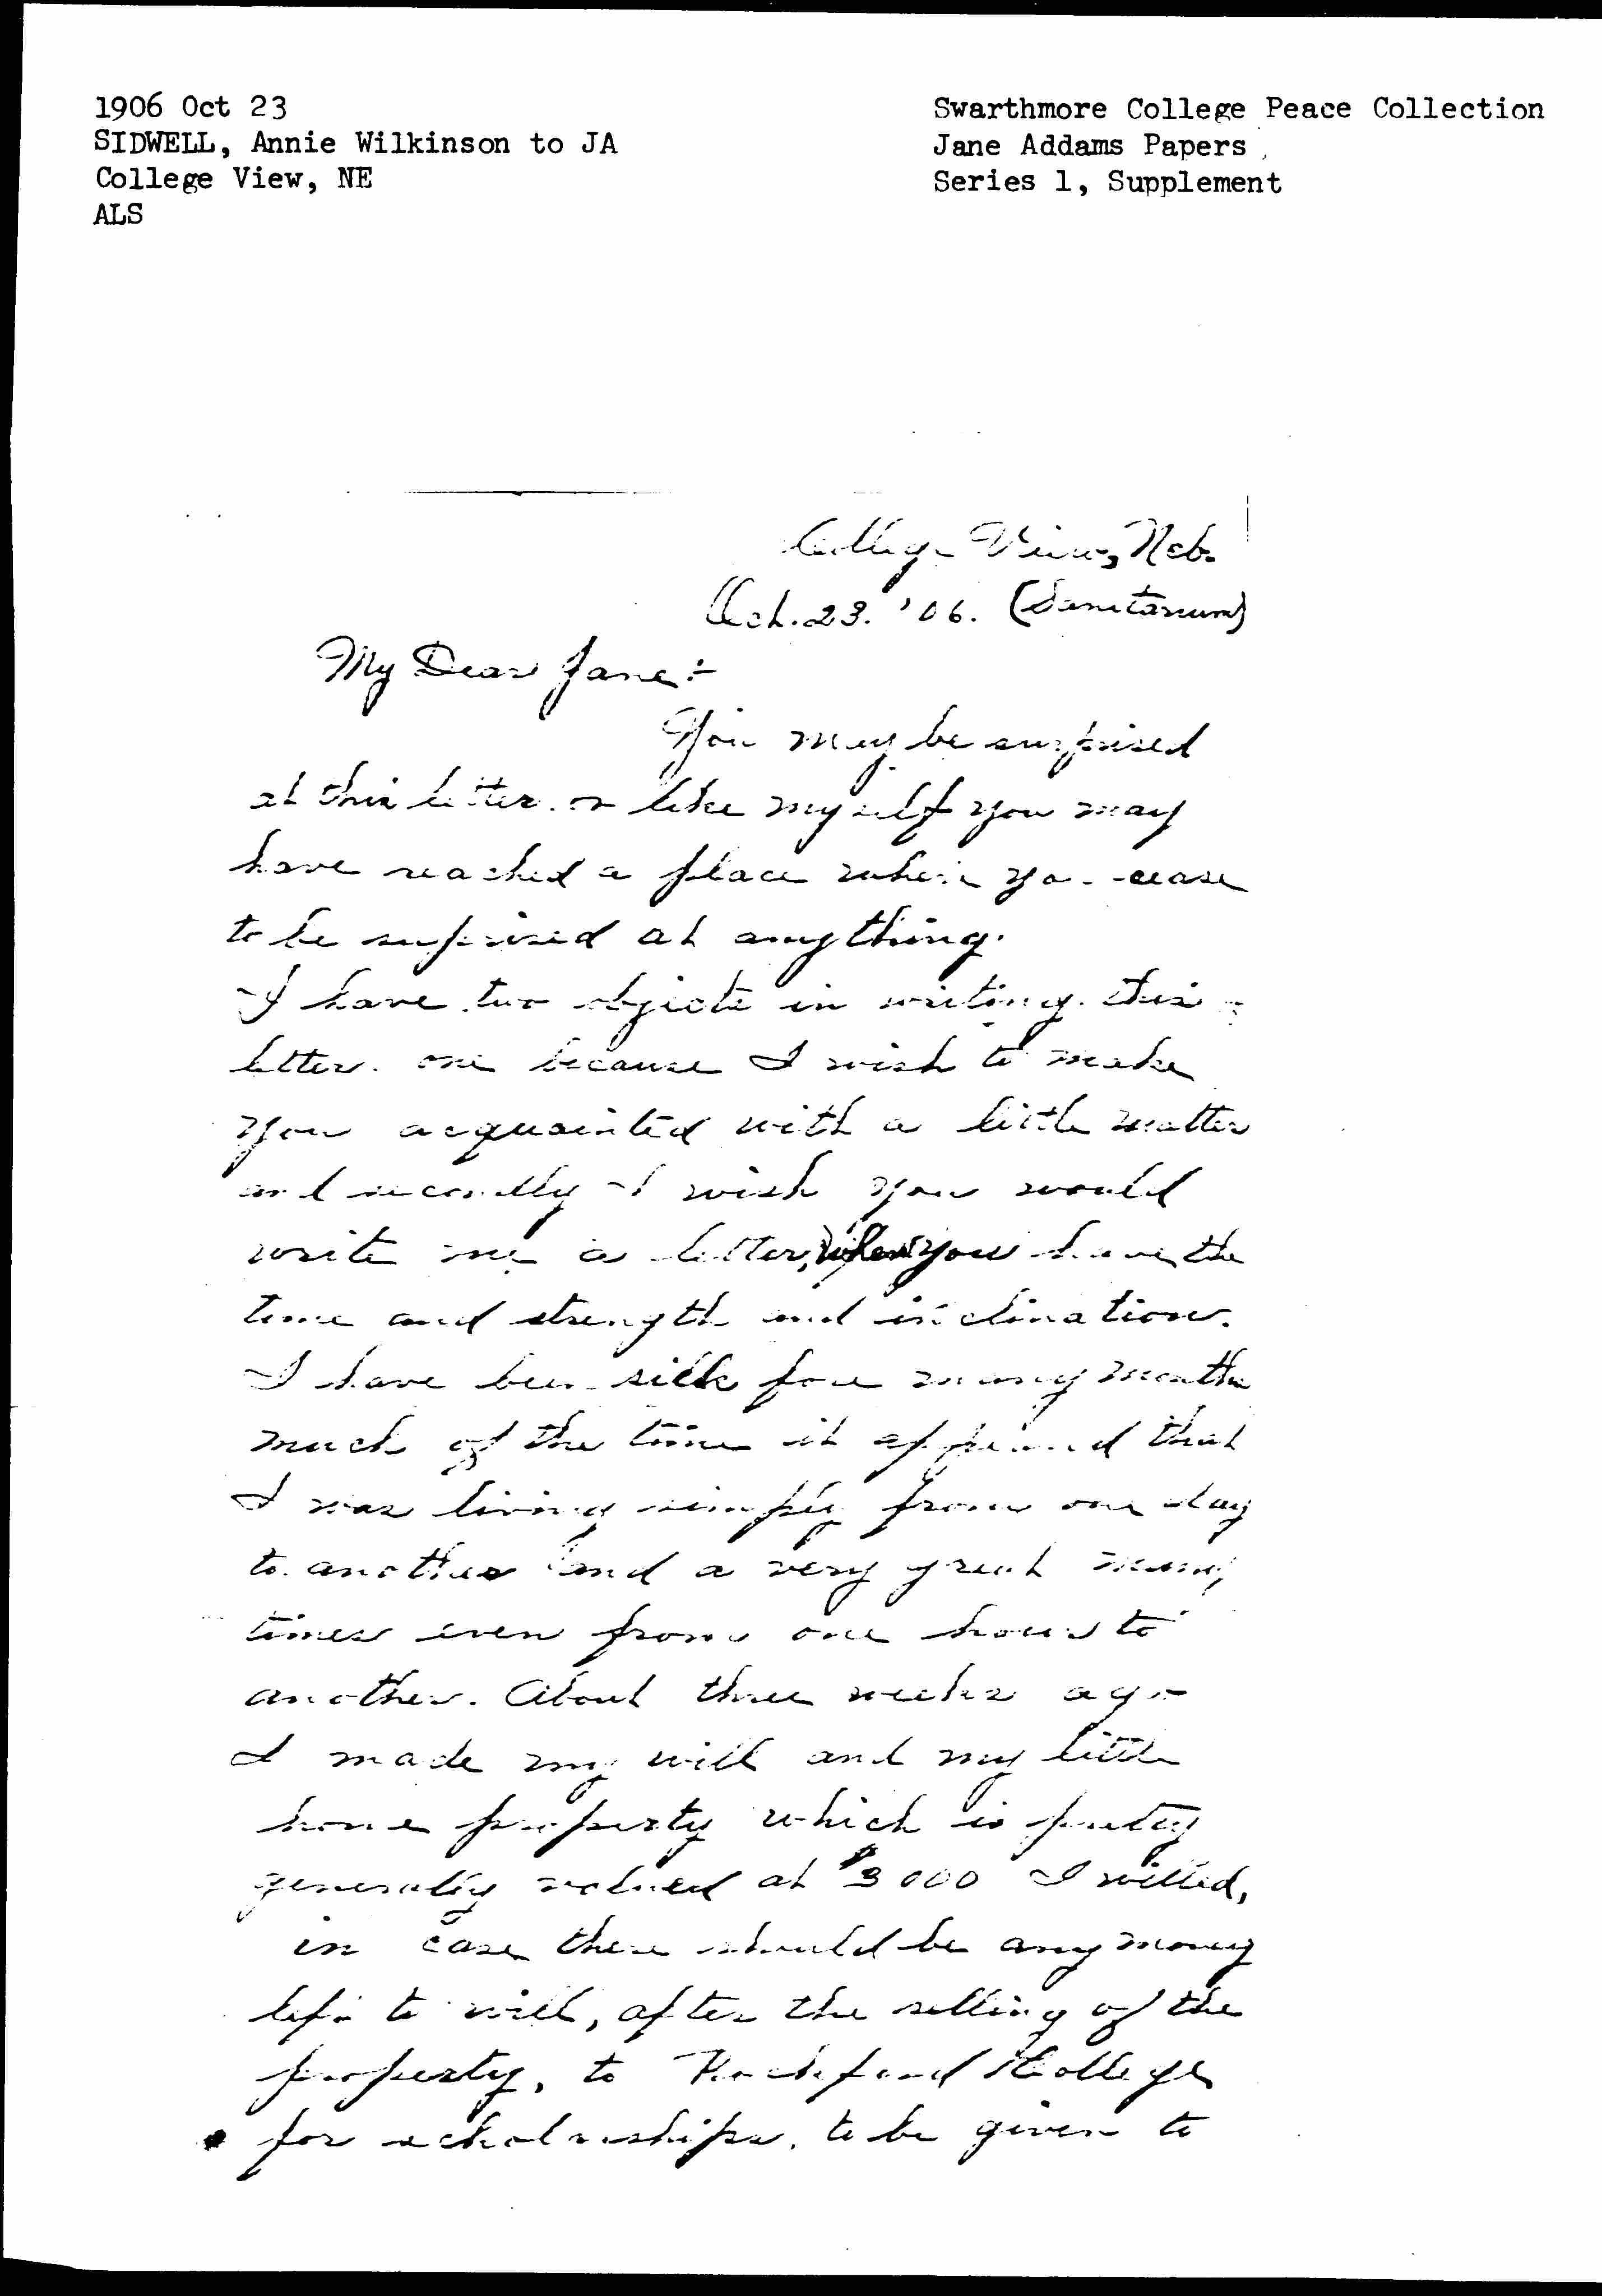 1906 Oct 23
SIDWELL, Annie Wilkinson to JA
College View, NE
ALS
Swarthmore College Peace Collection
Jane Addams Papers
Series 1, Supplement
College View, Neb.
Oct. 23. '06. (Sanitarium)
My Dear Jane:-
You may be surprised
at this letter. or like myself you may
have reached a place where you cease
to be surprised at anything.
I have two objects in writing this
letter. one because I wish to make
you acquainted with a little matter
and secondly I wish you would
write me a letter, when you have the
time and strength and inclination.
I have been sick for many months
much of the time it appeared that
I was living simply from one day
to another and a very great many
times even from one hour to
another. About three weeks ago
I made my will and my little
home property which is pretty
generally valued at $3000 I willed,
in case there should be any money
left to will, after the selling of the
property, to Rockford College
for scholarships. to be given to